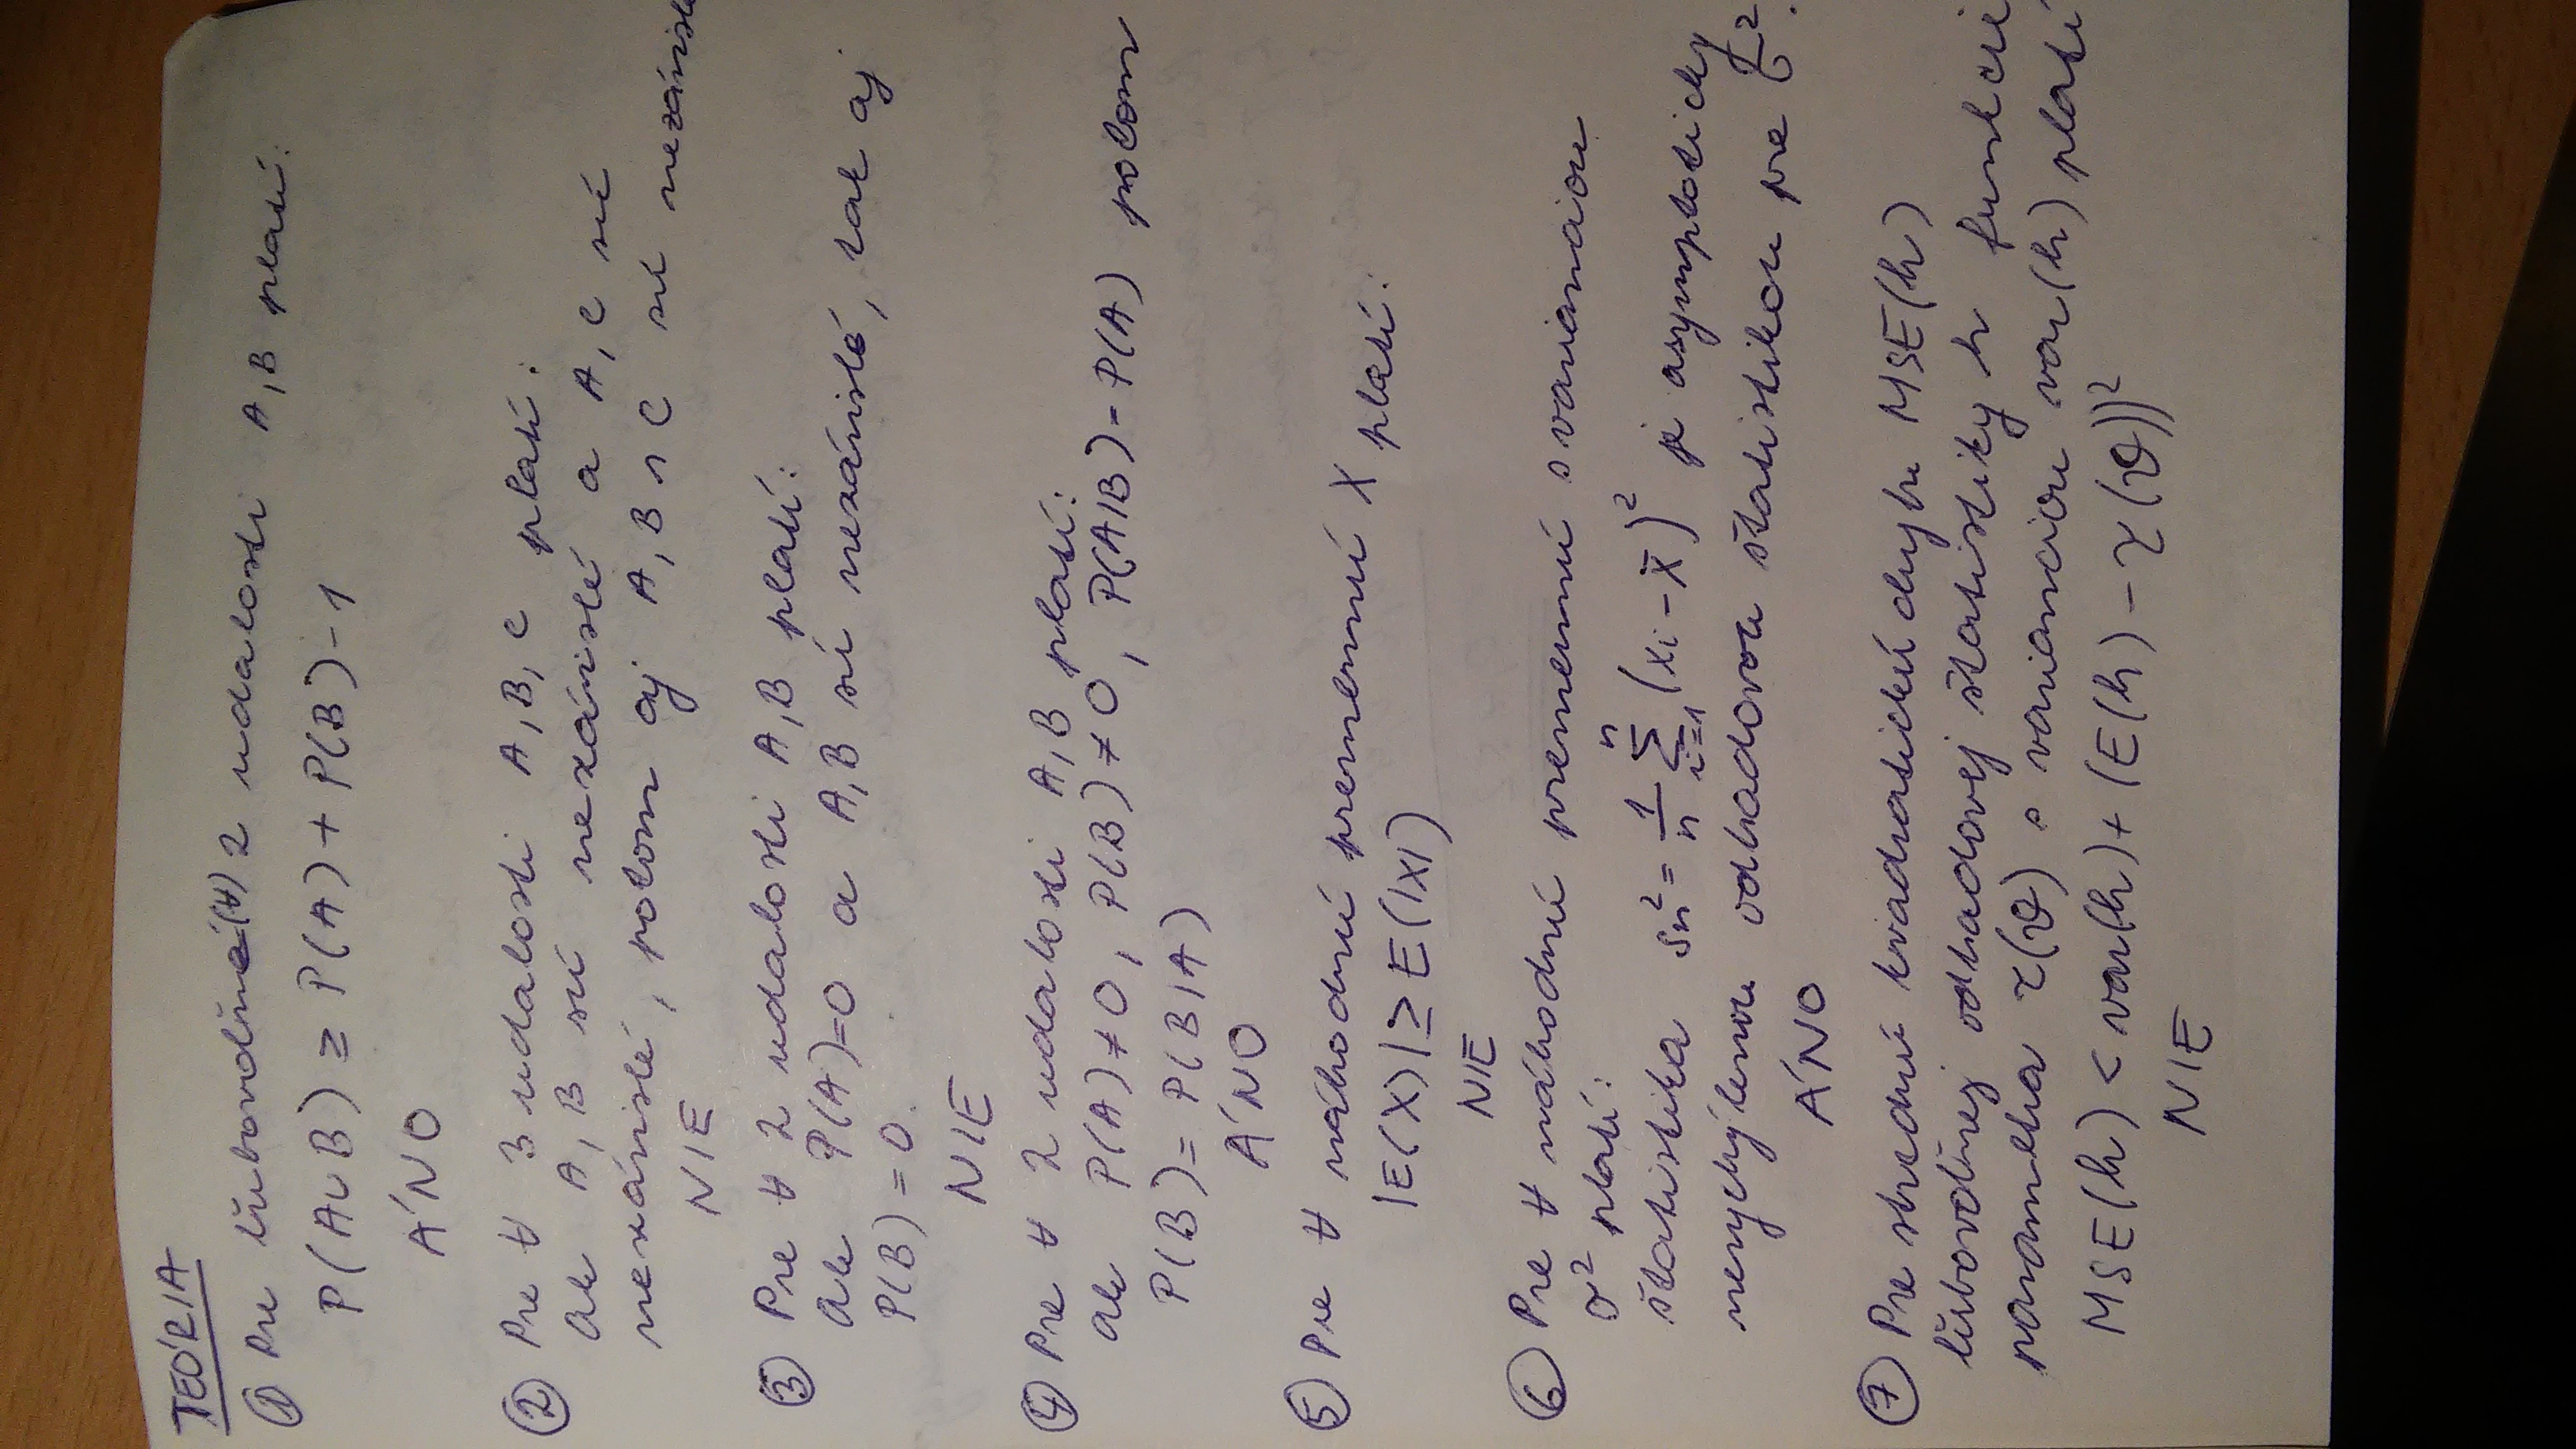 TEÓRIA
① Pre ľubovoľné (∀) 2 udalosti A,B platí:
P(A∪B) ≥ P(A) + P(B) - 1
ÁNO
② Pre ∀ 3 udalosti A, B, C platí:
Ak A, B sú nezávislé a A, C sú
nezávislé, potom aj A, B ∩ C sú nezávislé
NIE
③ Pre ∀ 2 udalosti A,B platí:
Ak P(A)=0 a A,B sú nezávislé, tak aj
P(B) = 0.
NIE
④ Pre ∀ 2 udalosti A,B platí:
Ak P(A) ≠ 0, P(B) ≠ 0, P(A|B) = P(A) potom
P(B) = P(B|A)
ÁNO
⑤ Pre ∀ náhodnú premennú X platí:
|E(X)| ≥ E(|X|)
NIE
⑥ Pre ∀ náhodnú premennú s varianciou
σ² platí:
štatistika Sn² = 1/n ∑ i=1 n (Xi - X̄)² je asymptoticky
nevychýlenou odhadovou štatistikou pre σ².
ÁNO
⑦ Pre strednú kvadratickú chybu MSE(h)
ľubovoľnej odhadovej štatistiky h funkcie
parametra τ(ϑ) s varianciou var(h) platí
MSE(h) < var(h) + (E(h) - τ(ϑ))²
NIE